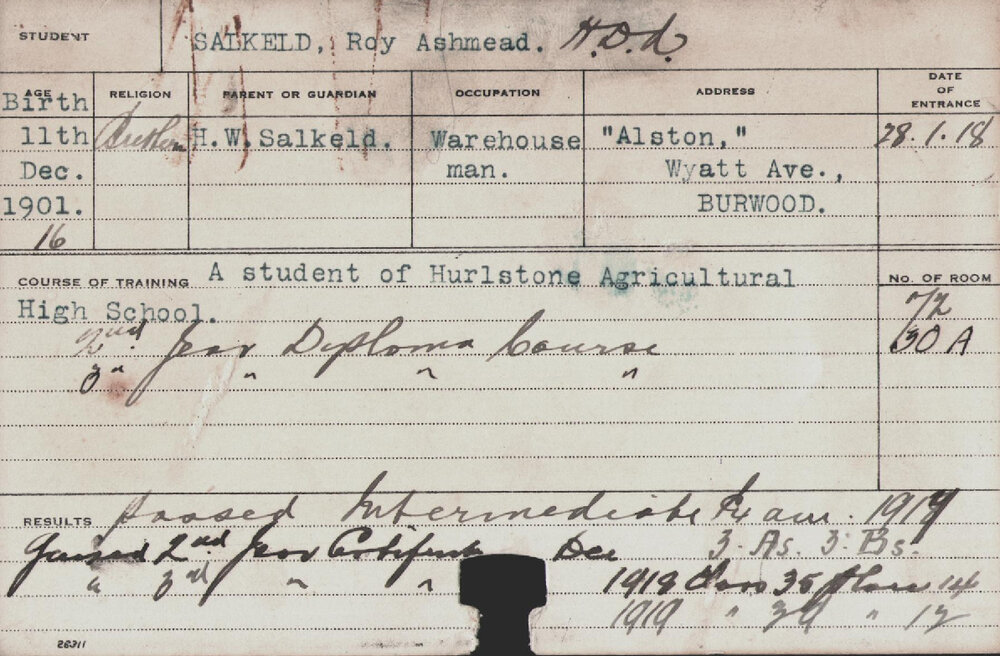 STUDENT SALKELD, Roy Ashmead. H.D.A.
AGE RELIGION PARENT OR GUARDIAN OCCUPATION ADDRESS DATE OF ENTRANCE
Birth
11th H.W. Salkeld. Warehouse "Alston," 28.1.18
Dec. man. Wyatt Ave.,
1901. BURWOOD.
16
COURSE OF TRAINING A student of Hurlstone Agricultural No. OF ROOM
High School.
2nd Year Diploma Course 30 A
3" " " "
RESULTS Passed Intermediate Exam. 1917
Gained 2nd Year Certificate Dec 3. As. 3. Bs.
" 3rd " " 1918 Class 35 place 14
1919 " 29 " 12
26311